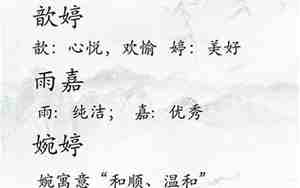 歆婷
歆：心悦，欢愉 婷：美好
雨嘉
雨：纯洁； 嘉：优秀
婉婷
婉寓意“和顺、温和”